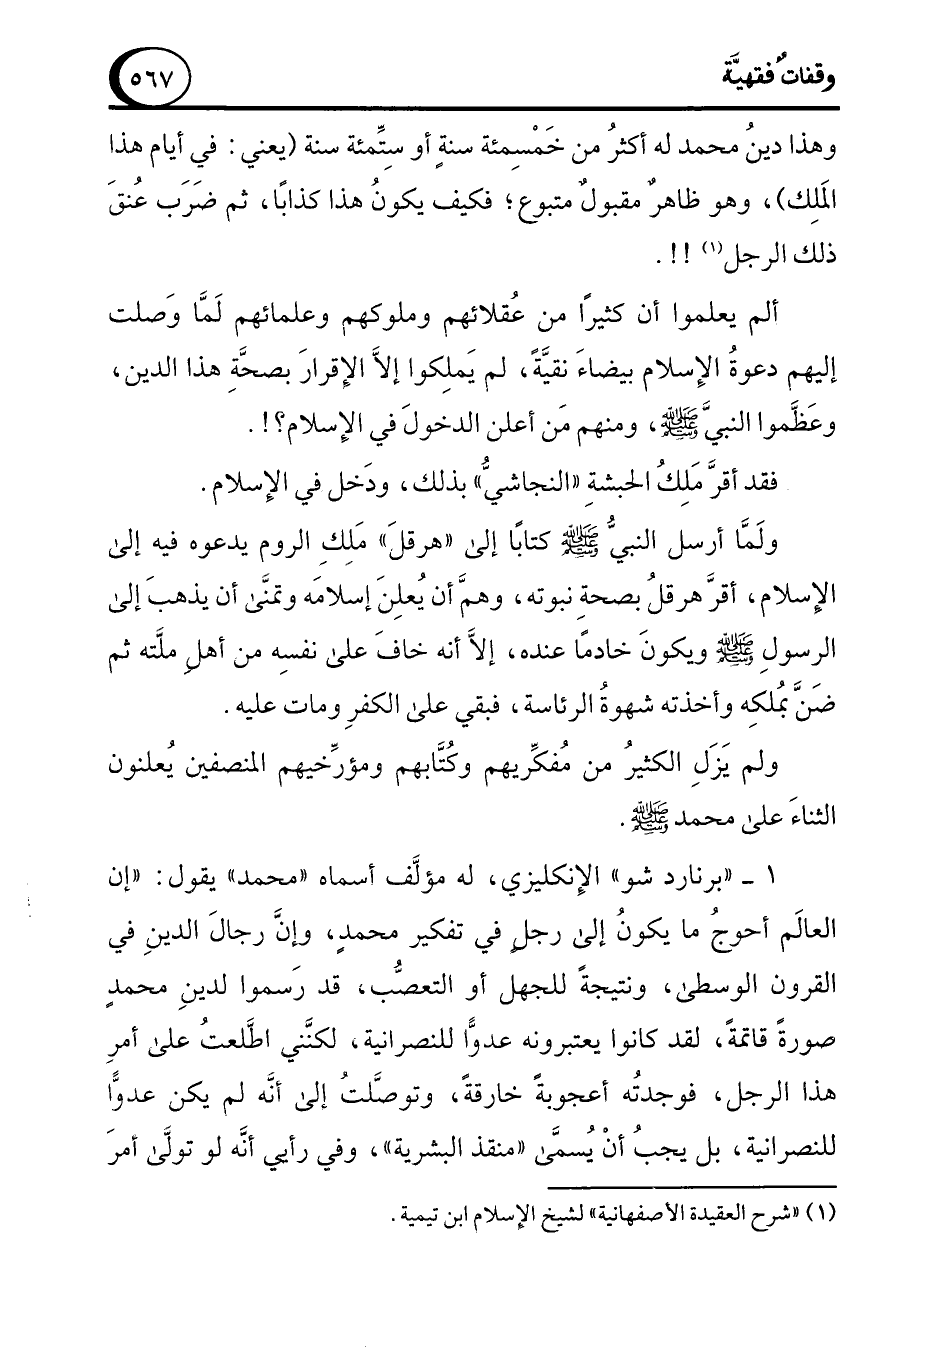 وقفاتٌ فقهيَّة
٥٦٧
وهذا دينُ محمد له أكثرُ من خَمْسِمئة سنةٍ أو سِتِّمئة سنة (يعني: في أيام هذا
المَلِك)، وهو ظاهرٌ مقبولٌ متبوع؛ فكيف يكونُ هذا كذابًا، ثم ضَرَب عُنقَ
ذلك الرجل(١) !!.
ألم يعلموا أن كثيرًا من عُقلائهم وملوكهم وعلمائهم لَمَّا وَصلت
إليهم دعوةُ الإسلام بيضاءَ نقيَّةً، لم يَملِكوا إلاَّ الإقرارَ بصحَّةِ هذا الدين،
وعَظَّموا النبيَّ ﷺ، ومنهم مَن أعلن الدخولَ في الإسلام؟!.
فقد أقرَّ مَلِكُ الحبشةِ «النجاشيُّ» بذلك، ودَخل في الإسلام.
ولَمَّا أرسل النبيُّ ﷺ كتابًا إلىٰ «هرقلَ» مَلِكِ الروم يدعوه فيه إلىٰ
الإسلام، أقرَّ هرقلُ بصحةِ نبوته، وهمَّ أن يُعلِنَ إسلامَه وتمنَّىٰ أن يذهبَ إلىٰ
الرسولِ ﷺ ويكونَ خادمًا عنده، إلاَّ أنه خافَ علىٰ نفسِه من أهلِ ملَّته ثم
ضَنَّ بمُلكِه وأخذته شهوةُ الرئاسة، فبقي علىٰ الكفرِ ومات عليه.
ولم يَزَلِ الكثيرُ من مُفكِّريهم وكُتَّابهم ومؤرِّخيهم المنصفين يُعلنون
الثناءَ علىٰ محمد ﷺ.
١ ـ «برنارد شو» الإنكليزي، له مؤلَّف أسماه «محمد» يقول: «إن
العالَم أحوجُ ما يكونُ إلىٰ رجلٍ في تفكير محمدٍ، وإنَّ رجالَ الدينِ في
القرون الوسطىٰ، ونتيجةً للجهل أو التعصُّب، قد رَسموا لدينِ محمدٍ
صورةً قاتمةً، لقد كانوا يعتبرونه عدوًّا للنصرانية، لكنَّني اطَّلعتُ علىٰ أمرِ
هذا الرجل، فوجدتُه أعجوبةً خارقةً، وتوصَّلتُ إلىٰ أنَّه لم يكن عدوًّا
للنصرانية، بل يجبُ أنْ يُسمَّىٰ «منقذ البشرية»، وفي رأيي أنَّه لو تولَّىٰ أمرَ
(١) «شرح العقيدة الأصفهانية» لشيخ الإسلام ابن تيمية.